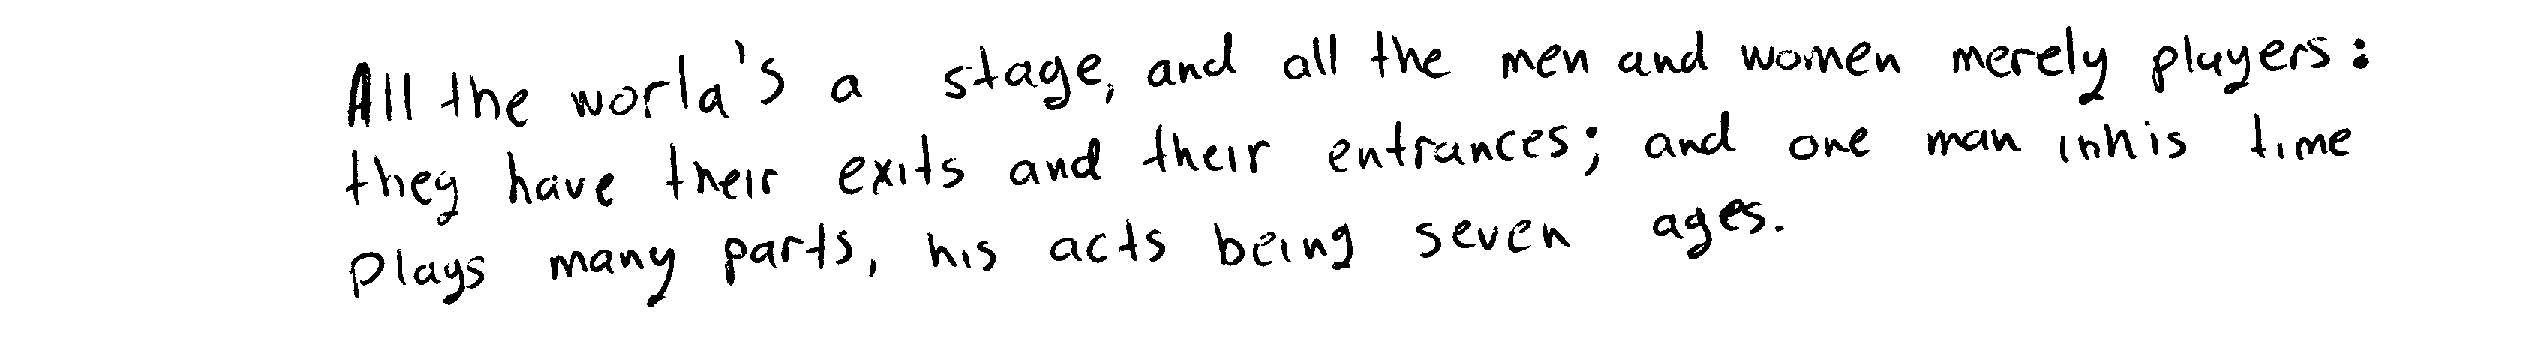 All the world's a stage, and all the men and women merely players:
they have their exits and their entrances; and one man in his time
plays many parts, his acts being seven ages.